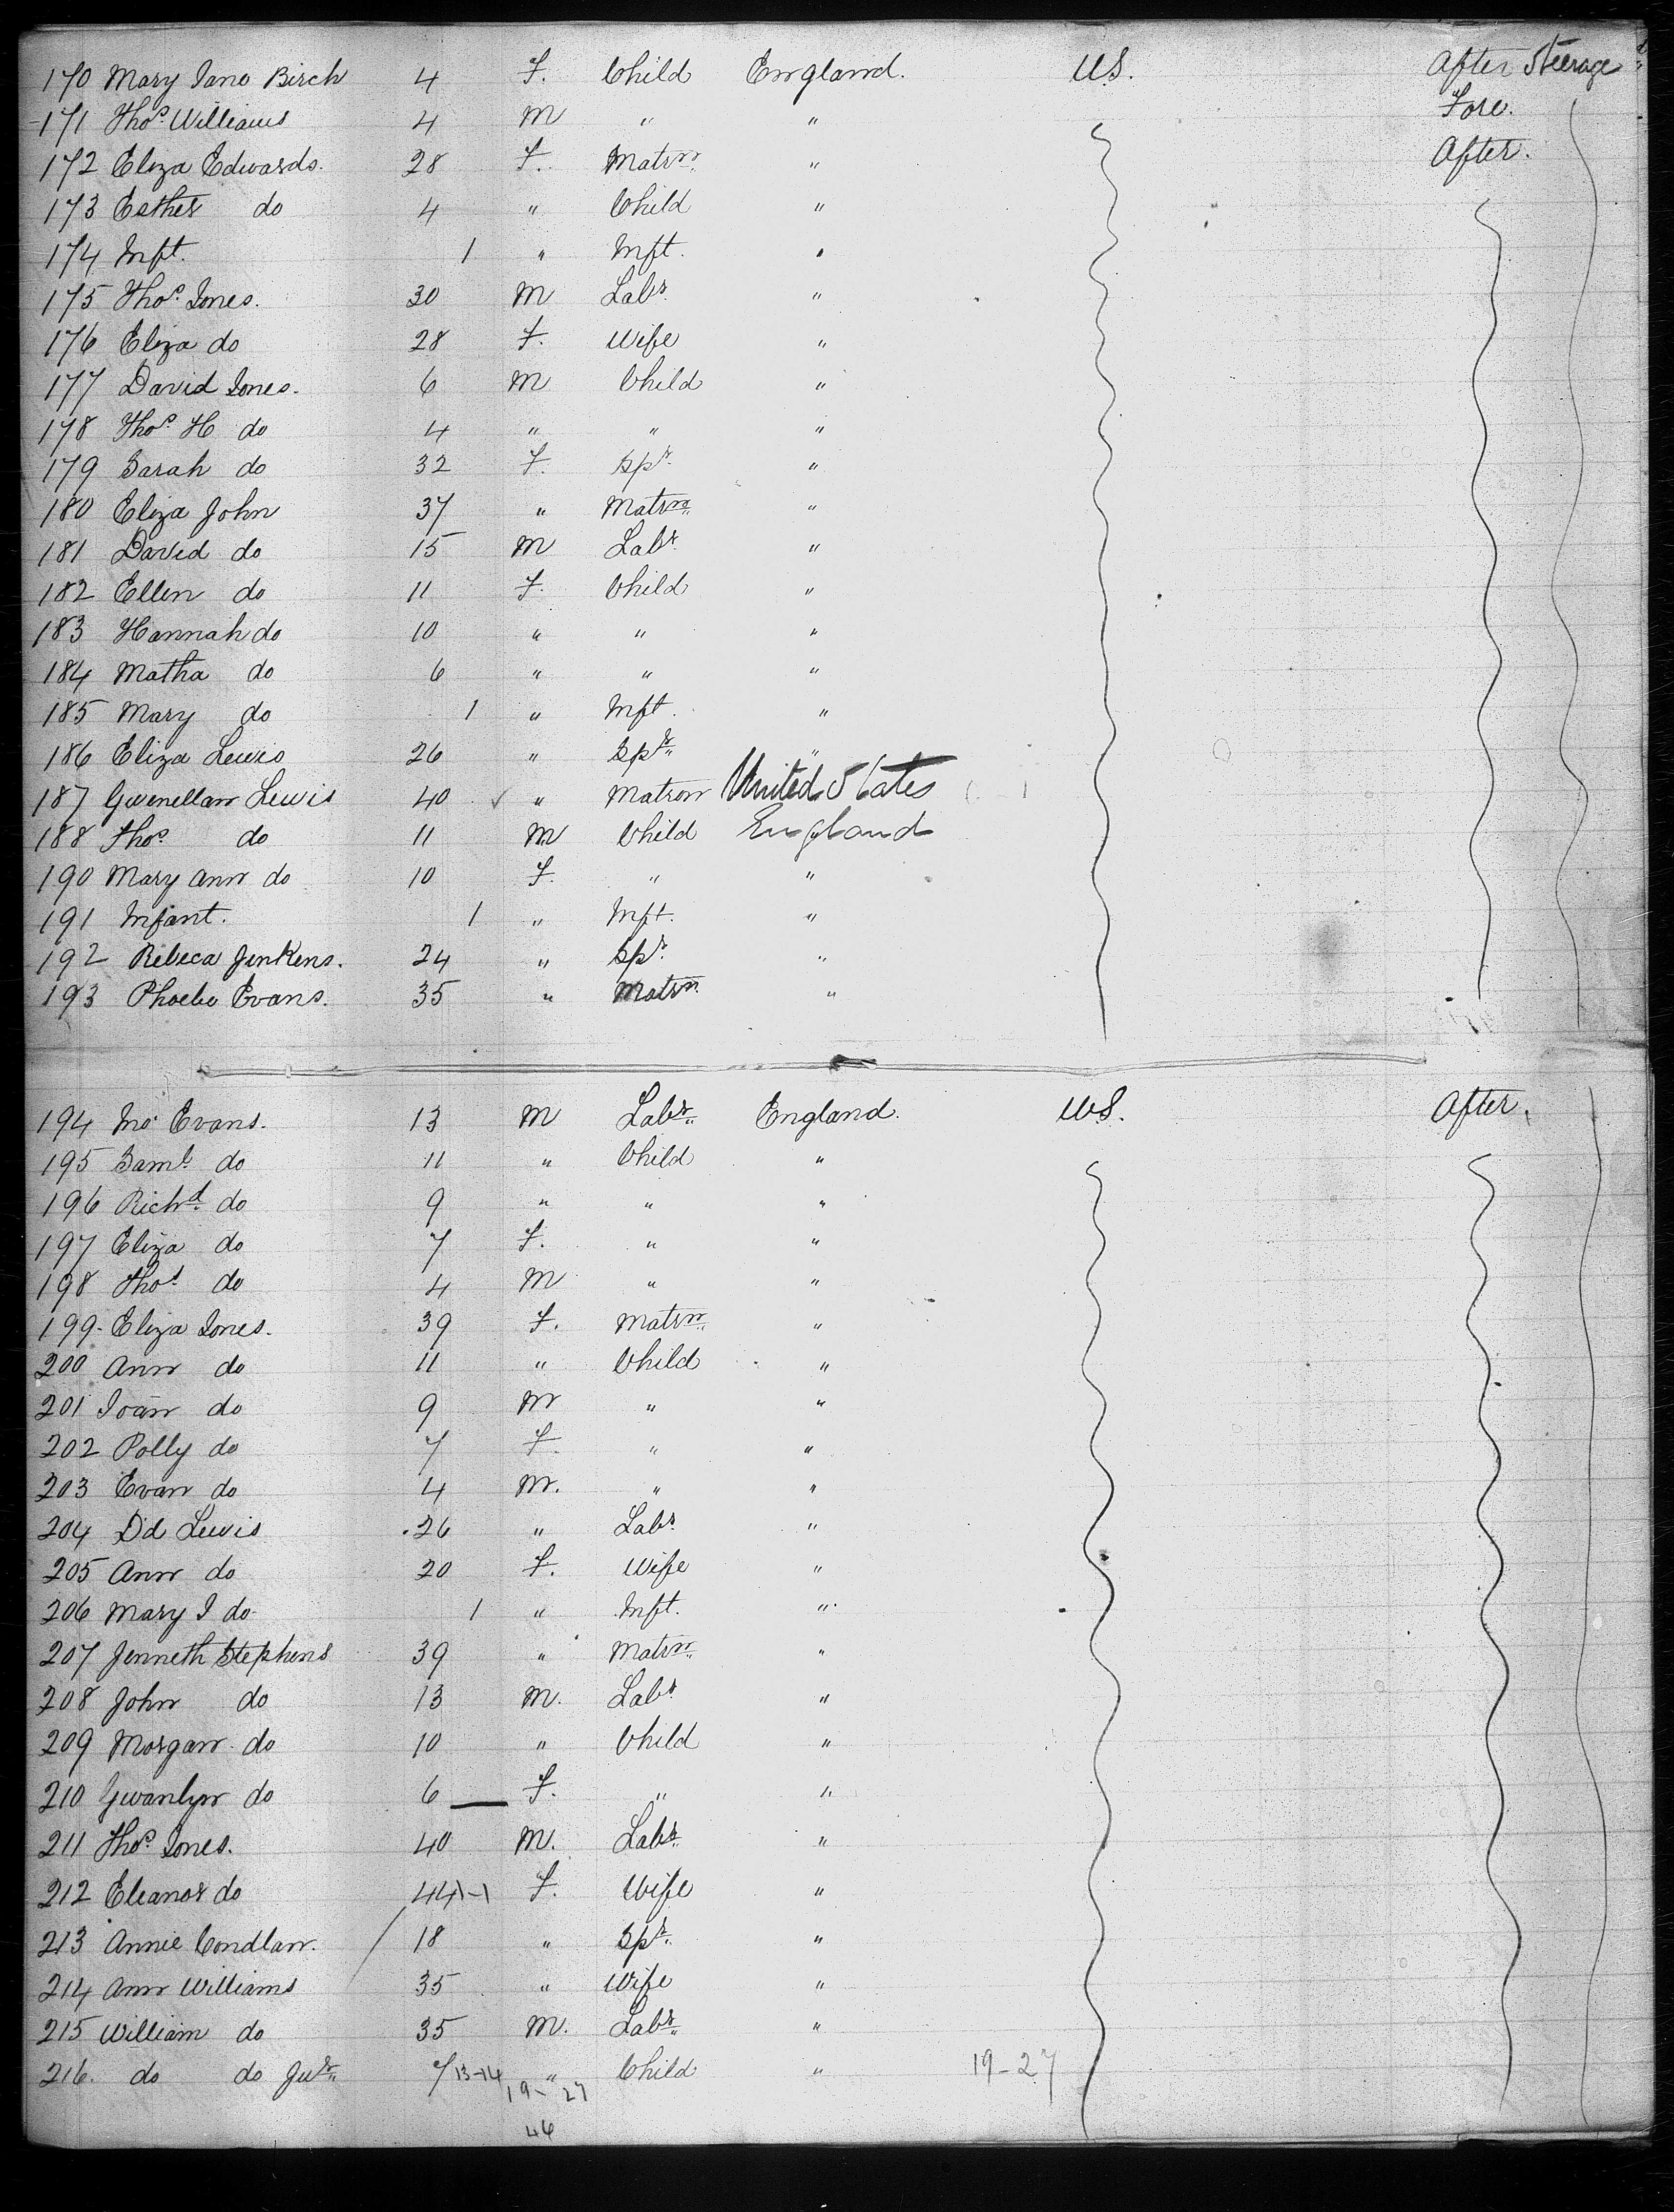 170 Mary Jane Birch 4 F. Child England. U.S. After Steerage
171 Thos. Williams 4 M " " Fore.
172 Eliza Edwards. 28 F. Matrn. " After.
173 Esther do 4 " Child "
174 Inft. 1 " Inft. "
175 Thos. Jones. 30 M Labr. "
176 Eliza do 28 F. Wife "
177 David Jones. 6 M Child "
178 Thos. H do 4 " " "
179 Sarah do 32 F. Spr. "
180 Eliza John 37 " Matrn. "
181 David do 15 M Labr. "
182 Ellen do 11 F. Child "
183 Hannah do 10 " " "
184 Matha do 6 " " "
185 Mary do 1 " Inft. "
186 Eliza Lewis 26 " Spr. "
187 Gwenellan Lewis 40 ✓ " Matron United States
188 Thos. do 11 M Child England
190 Mary Ann do 10 F. " "
191 Infant. 1 " Inft. "
192 Rebeca Jenkens. 24 " Spr. "
193 Phoebe Evans. 35 " Matrn. "
194 Jno Evans. 13 M Labr. England. U.S. After.
195 Saml. do 11 " Child "
196 Richd. do 9 " " "
197 Eliza do 7 F. " "
198 Thos. do 4 M " "
199 Eliza Jones. 39 F. Matrn. "
200 Ann do 11 " Child "
201 Joan do 9 M " "
202 Polly do 7 F. " "
203 Evan do 4 M. " "
204 Dd Lewis 26 " Labr. "
205 Ann do 20 F. Wife "
206 Mary J do 1 " Inft. "
207 Jenneth Stephens 39 " Matrn. "
208 John do 13 M. Labr. "
209 Morgan do 10 " Child "
210 Gwanlyn do 6 F. " "
211 Thos. Jones. 40 M. Labr. "
212 Eleanor do 44 1-1 F. Wife "
213 Annie Condlan. 18 " Spr. "
214 Ann Williams 35 " Wife "
215 William do 35 M. Labr. "
216. do do Jur. 7 13-14 " Child " 19-27
19- 27
46